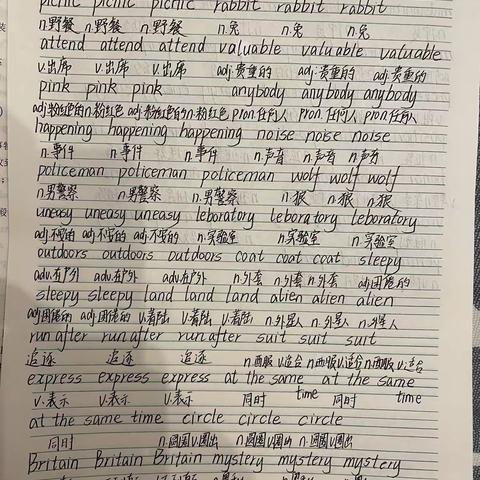 picnic picnic picnic rabbit rabbit rabbit
n.野餐 n.野餐 n.野餐 n.兔 n.兔 n.兔
attend attend attend valuable valuable valuable
v.出席 v.出席 v.出席 adj.贵重的 adj.贵重的 adj.贵重的
pink pink pink anybody anybody anybody
adj.粉红色的n.粉红色 adj.粉红色的n.粉红色 pron.任何人 pron.任何人 pron.任何人
happening happening happening noise noise noise
n.事件 n.事件 n.事件 n.声音 n.声音 n.声音
policeman policeman policeman wolf wolf wolf
n.男警察 n.男警察 n.男警察 n.狼 n.狼 n.狼
uneasy uneasy uneasy leboratory leboratory leboratory
adj.不安的 adj.不安的 adj.不安的 n.实验室 n.实验室 n.实验室
outdoors outdoors outdoors coat coat coat sleepy
adv.在户外 adv.在户外 adv.在户外 n.外套 n.外套 n.外套 adj.困倦的
sleepy sleepy land land land alien alien alien
adj.困倦的 adj.困倦的 v.着陆 v.着陆 v.着陆 n.外星人 n.外星人 n.外星人
run after run after run after suit suit suit
追逐 追逐 追逐 n.西服v.适合 n.西服v.适合 n.西服v.适合
express express express at the same at the same
v.表示 v.表示 v.表示 同时 time 同时 time
at the same time circle circle circle
同时 n.圆圈v.圈出 n.圆圈v.圈出 n.圆圈v.圈出
Britain Britain Britain mystery mystery mystery